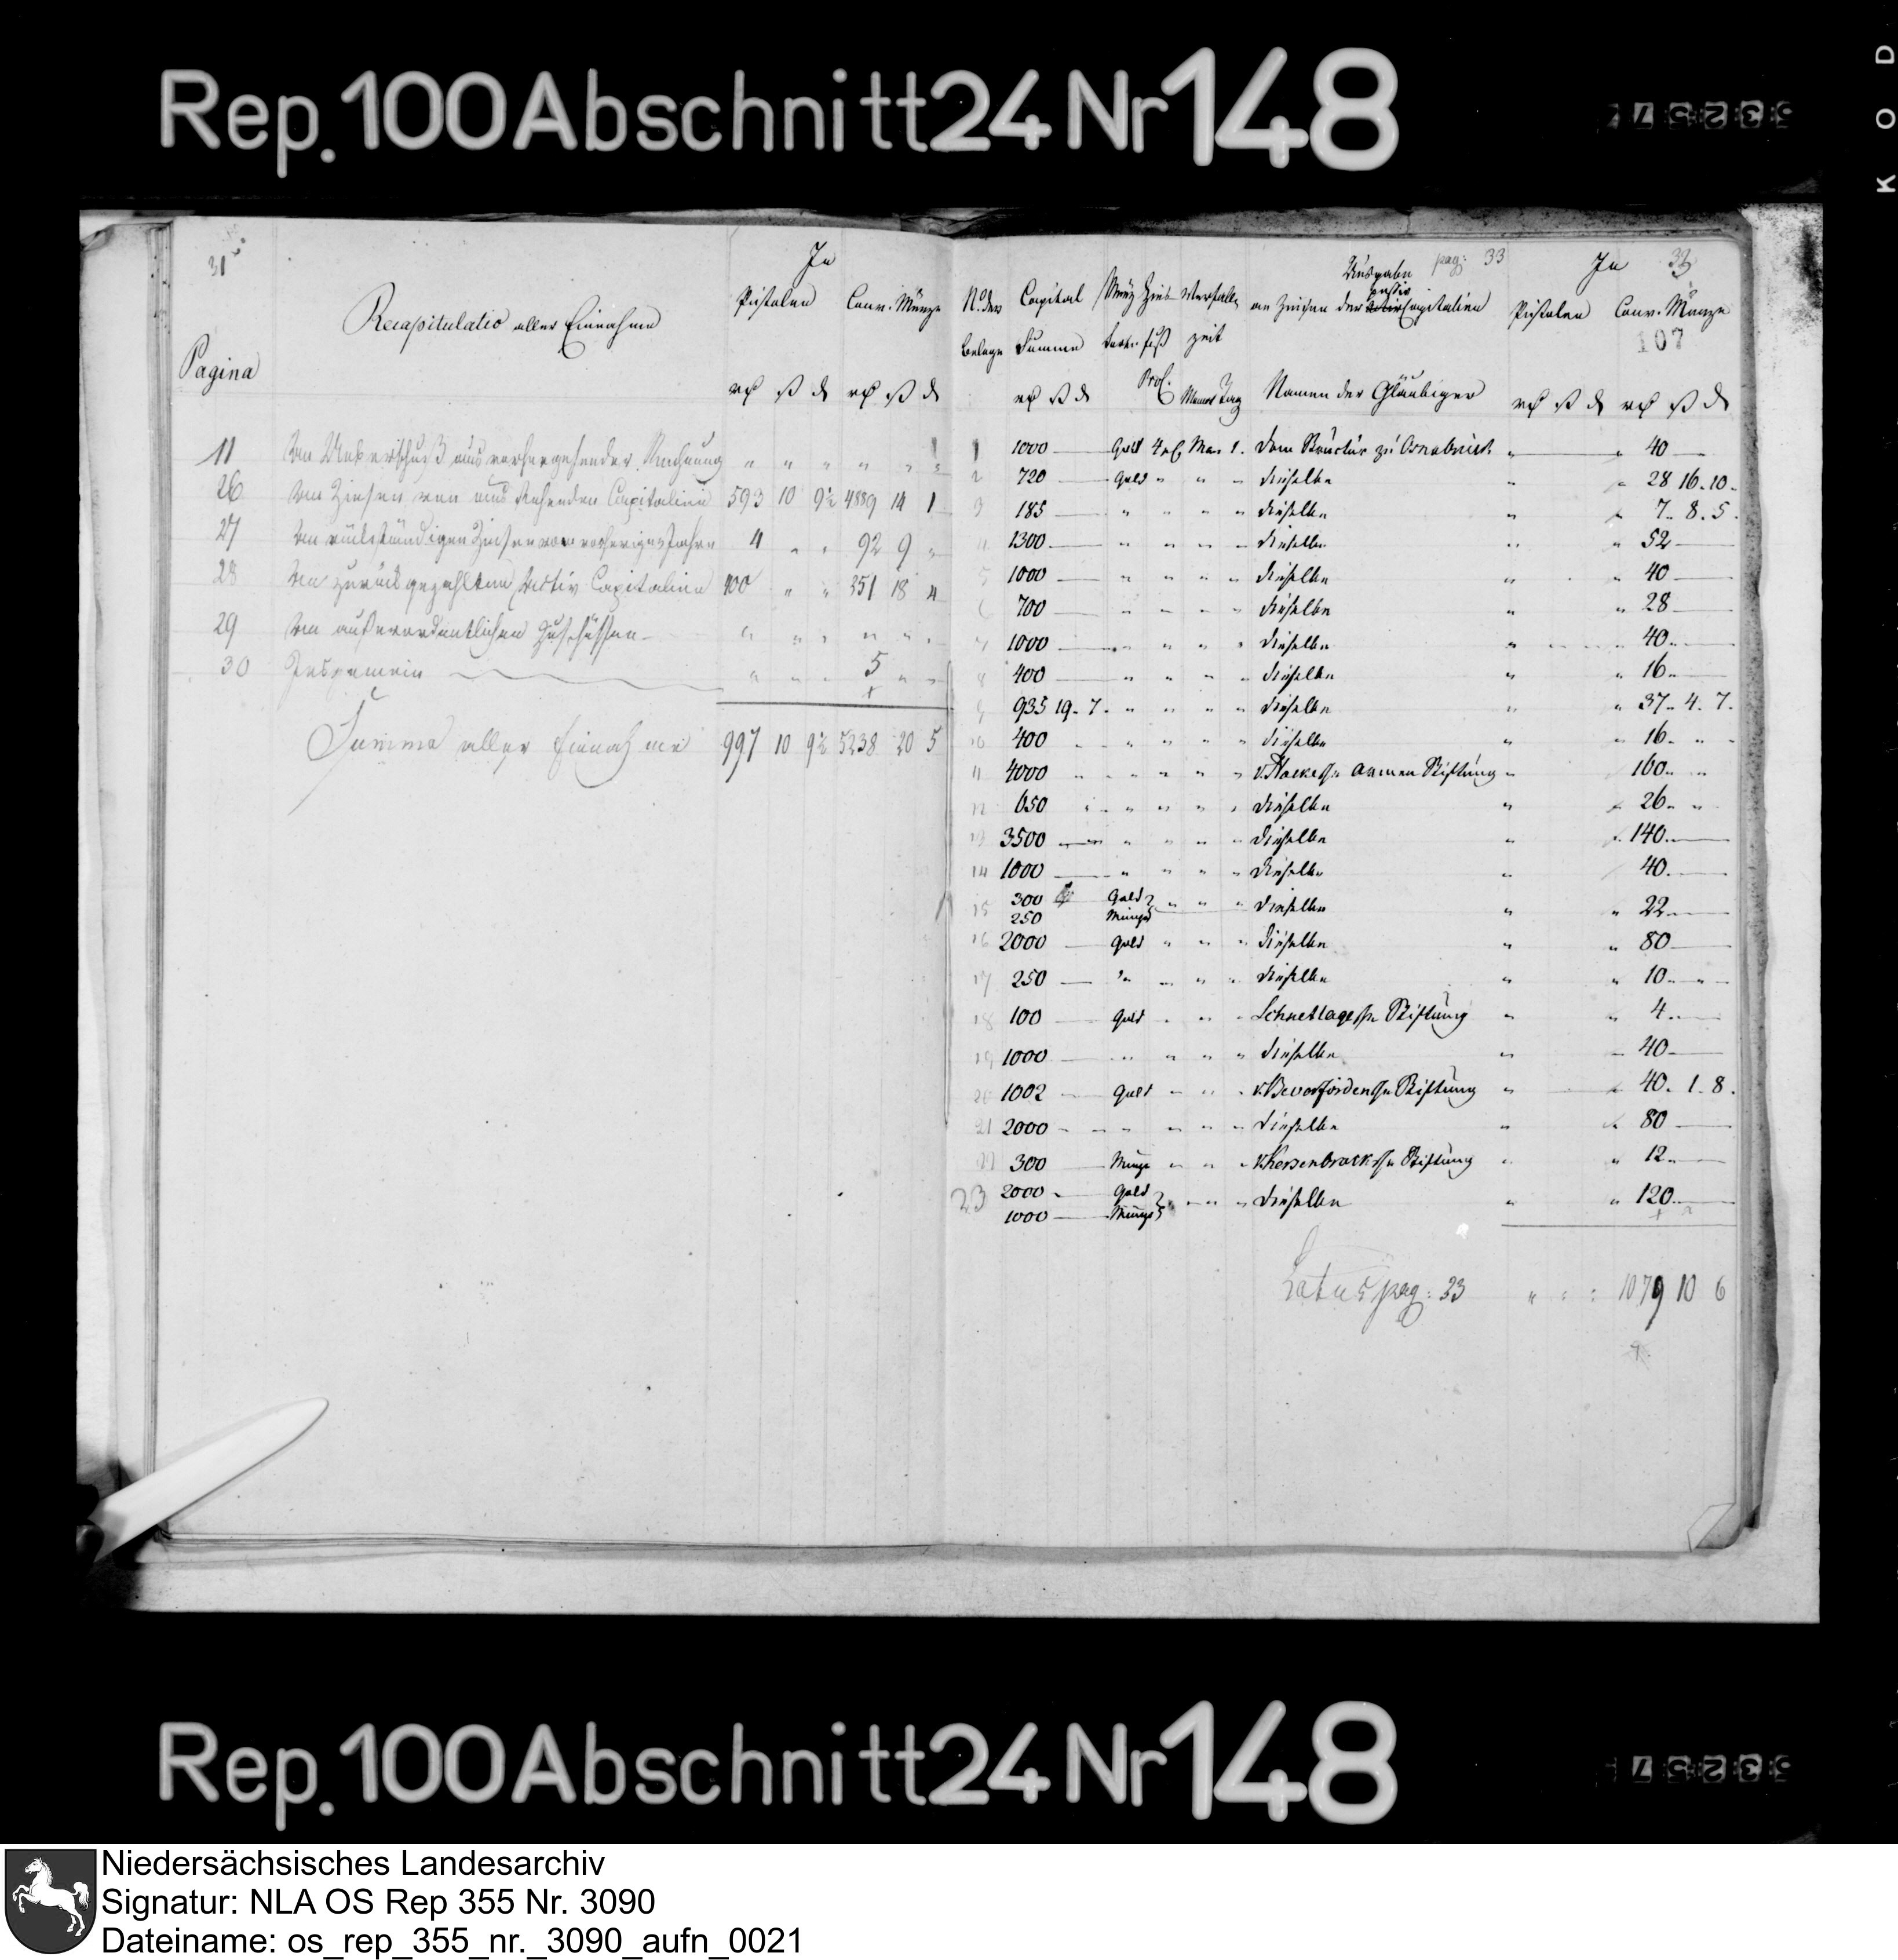 Rep. 100 Abschnitt 24 Nr 148
31
In
Recapitulatio aller Einnahme
Pistolen Conv. Münze
Pagina
rl ß d rl ß d
11 An Ueberschuß aus vorhergehender Rechnung " " " " " "
26 An Zinsen von aus stehenden Capitalien 593 10 9½ 4889 14 1
27 An rückständigen Zinsen von vorherigen Jahren 4 " " 92 9 "
28 An zurück gezahlten Activ Capitalien 400 " " 251 18 4
29 An außerordentlichen Zuschüssen " " " " " "
30 Insgemein " " " 5 " "
Summa aller Einnahme 997 10 9½ 5238 20 5
pag: 33 33
Ausgabe In
N. der Capital Münz Zins Verfall passiv
an Zinsen der Capitalien Pistolen Conv. Münze
Belege Summe fuß zeit 107
rl ß d Prof. Monat Tag Namen der Gläubiger rl ß d rl ß d
1 1000 Gold 4 pC Mai 1. Dom Structur zu Osnabrück " " 40
2 720 Gold " " " dieselbe " " 28 16. 10.
3 185 " " " " dieselbe " " 7. 8. 5.
4 1300 " " " " dieselbe " " 52
5 1000 " " " " dieselbe " " 40
6 700 " " " " dieselbe " " 28
7 1000 " " " " dieselbe " " 40
8 400 " " " " dieselbe " " 16
9 935 19. 7. " " " " dieselbe " " 37. 4. 7.
10 400 " " " " dieselbe " " 16. " "
11 4000 " " " " Armen Stiftung " 160. "
12 650 " " " " dieselbe " " 26. "
13 3500 " " " " dieselbe " " 140.
14 1000 " " " " dieselbe " 40.
15 300 Gold " " " dieselbe " " 22
250 Münze
16 2000 Gold " " " dieselbe " " 80
17 250 " " " " dieselbe " " 10. " "
18 100 Gold " " " Schnetlagesche Stiftung " " 4.
19 1000 " " " " dieselbe " " 40
20 1002 Gold " " " v. Bevorfördensche Stiftung " " 40. 1. 8.
21 2000 " " " " dieselbe " " 80
22 300 Münze " " " v. Kerssenbrocksche Stiftung " " 12.
23 2000 Gold " " " dieselbe " " 120
1000 Münze
Latus pag: 33 " " " 1079 10 6
Rep. 100 Abschnitt 24 Nr 148
Niedersächsisches Landesarchiv
Signatur: NLA OS Rep 355 Nr. 3090
Dateiname: os_rep_355_nr._3090_aufn_0021